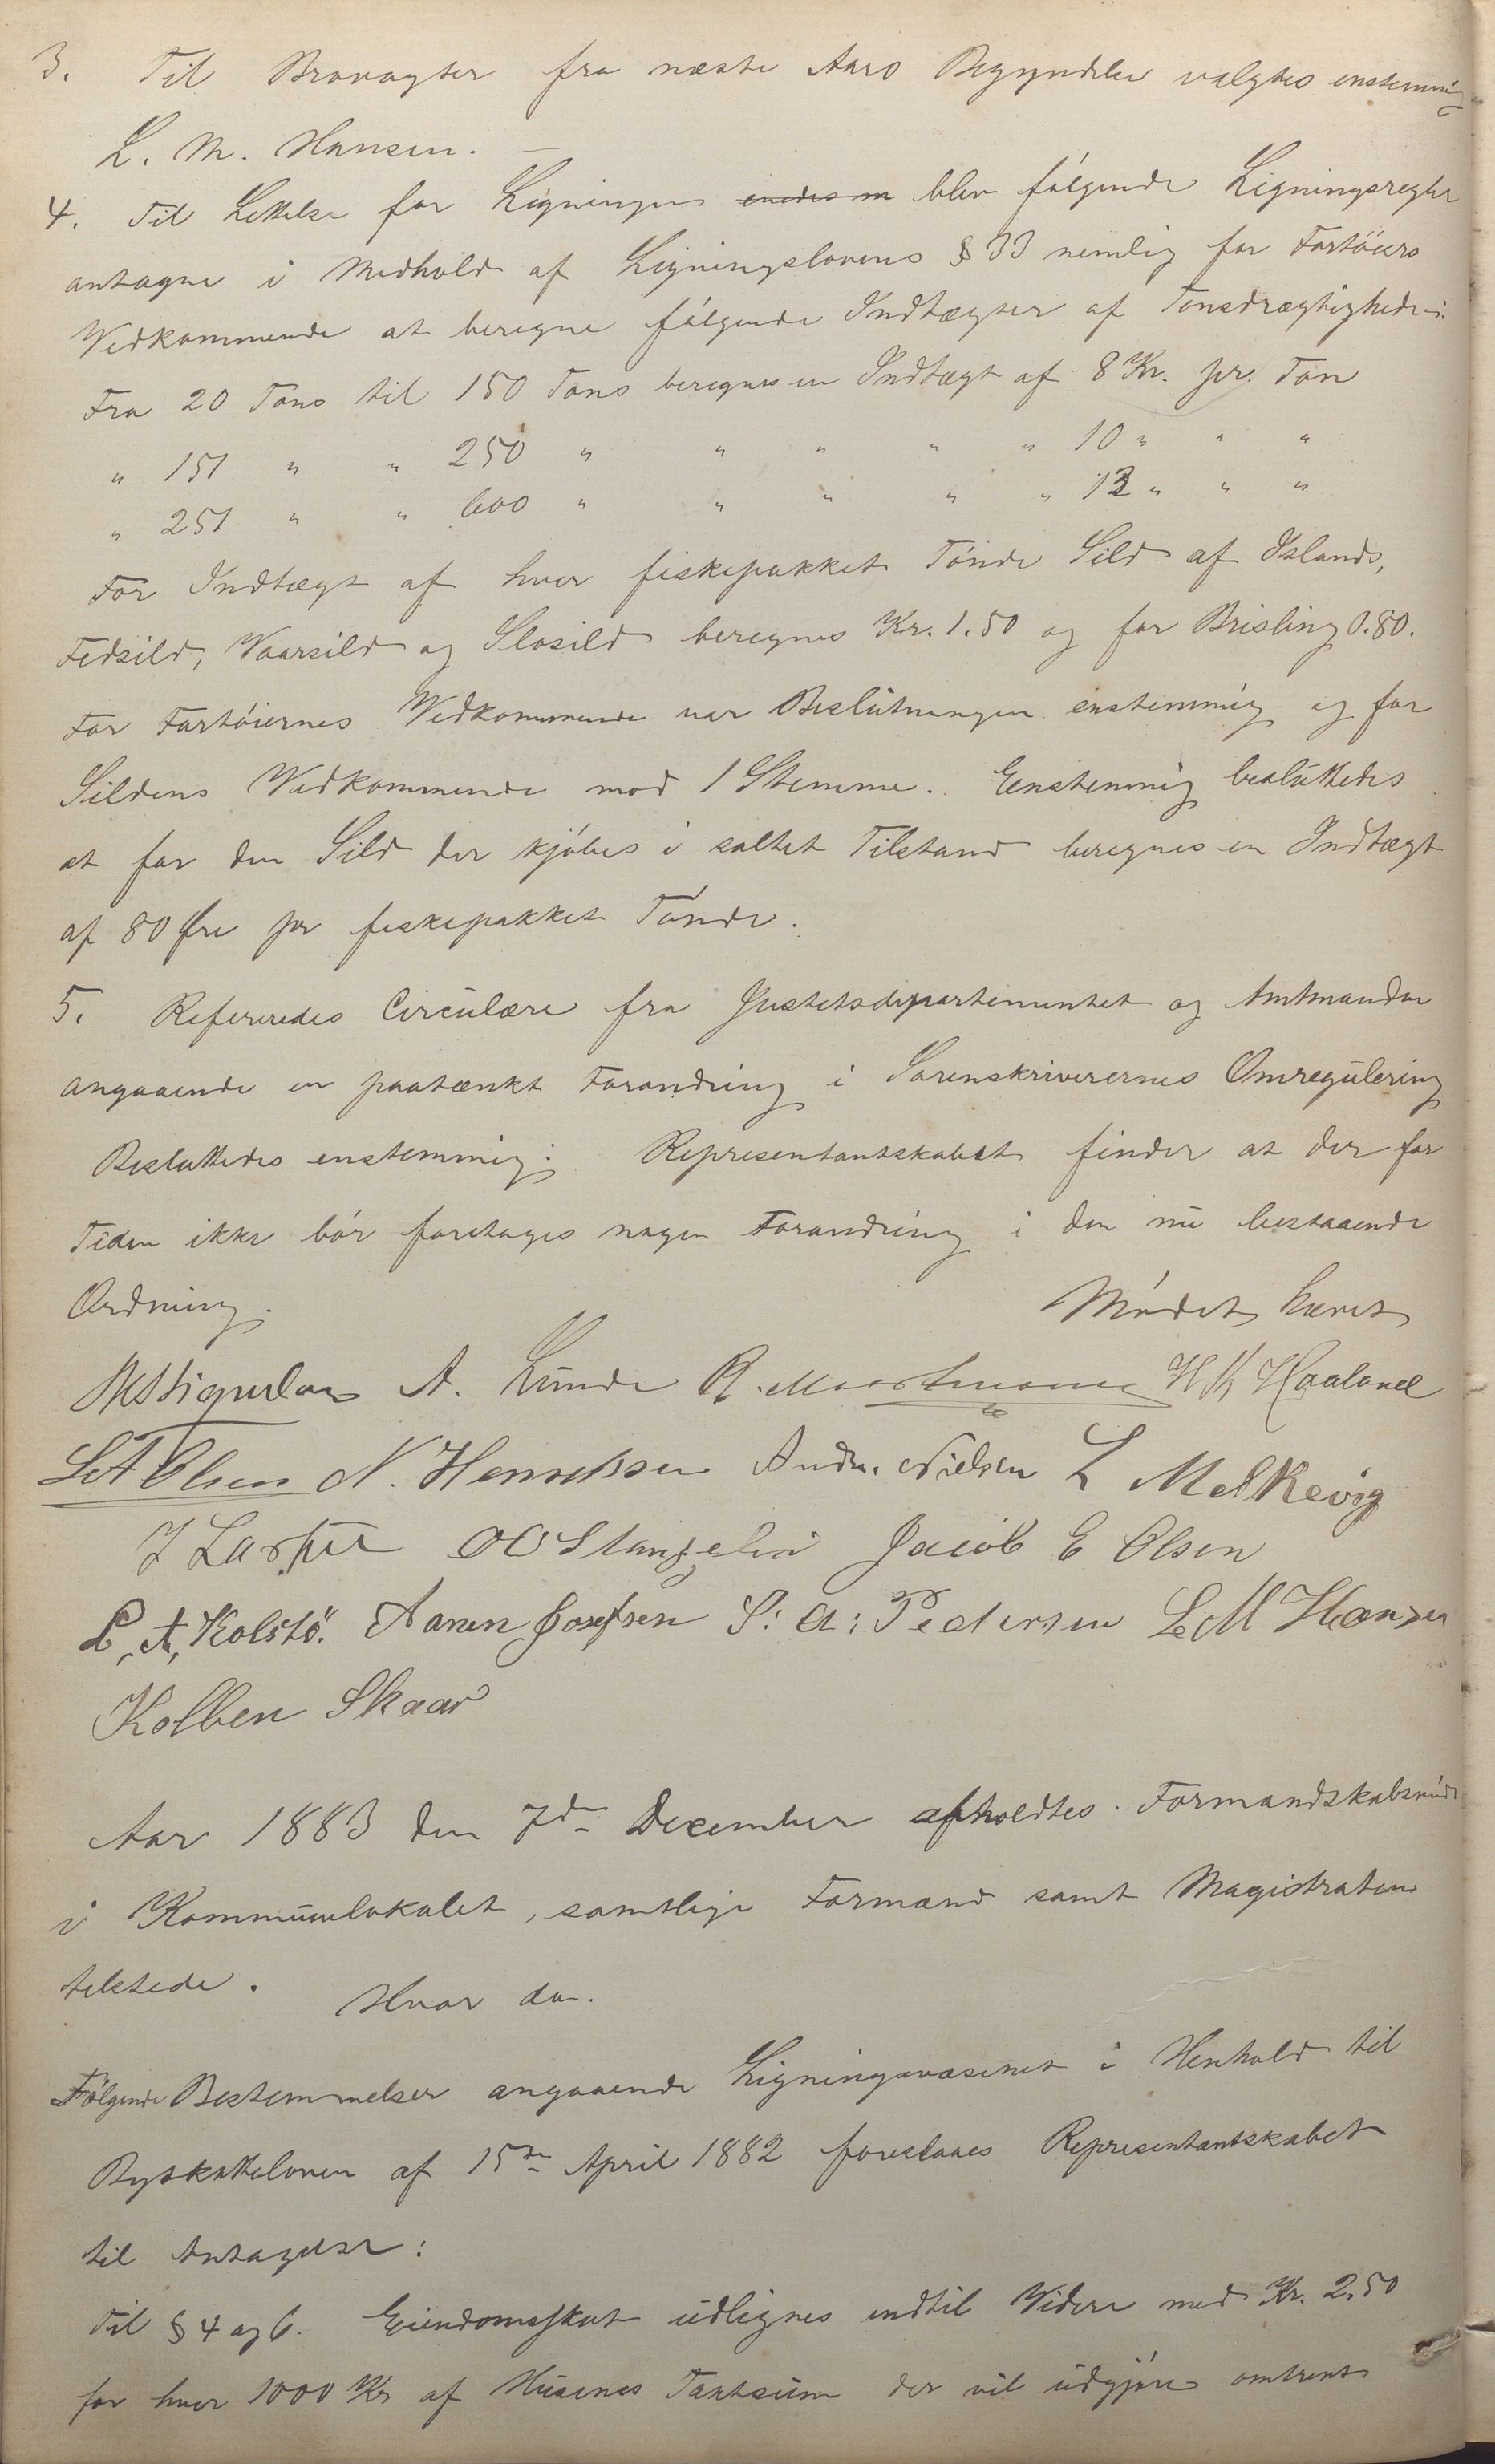 3. Til Brovagter fra næste Aars Begyndelse valgtes enstemmig
L. M. Hansen. —
4. Til Lettelse for Ligningen blev følgende Ligningsregler
antagne i Medhold af Ligningslovens § 33 nemlig for Fartøiers
Vedkommende at beregne følgende Indtægter af Tonsdrægtigheden:
Fra 20 Tons til 150 Tons beregnes en Indtægt af 8 Kr. pr. Ton
" 151 " " 250 " " " " " 10 " " "
" 251 " " 600 " " " " " 12 " " "
For Indtægt af hver fiskepakket Tønde Sild af Islands,
Fedsild, Vaarsild og Slosild beregnes Kr. 1.50 og for Brisling 0.80.
For Fartøiernes Vedkommende var Beslutningen enstemmig og for
Sildens Vedkommende mod 1 Stemme. Eenstemmig besluttedes
at for den Sild der kjøbes i saltet Tilstand beregnes en Indtægt
af 80 Øre pr fiskepakket Tønde.
5. Refereredes Circulære fra Justitsdepartementet og Amtmanden
angaaende en paatænkt Forandring i Sorenskriverernes Omregulering
Besluttedes enstemmig: Representantskabet finder at der for
Tiden ikke bør foretages nogen Forandring i den nu bestaaende
Ordning. Mødet hævet
A. Lunde H. M. Haaland
L A Olsen N. Henriksen Andr. Nielsen L Melkevig
O C Stangeland Jacob E Olsen
L. A. Kolstø. Aanen Josefsen S: A: Pedersen L M Hansen
Kolben Skaar
Aar 1883 den 7de December afholdtes Formandskabsmøde
i Kommunelokalet, samtlige Formænd samt Magistraten
tilstede. Hvor da.
Følgende Bestemmelser angaaende Ligningsvæsenet i Henhold til
Byskatteloven af 15de April 1882 foreslaaes Representantskabet
til Antagelse:
Til § 4 og 6. Eiendomsskat udlignes indtil Videre med Kr. 2.50
for hver 1000 Kr af Husenes Taxtsum der vil udgjøre omtrent